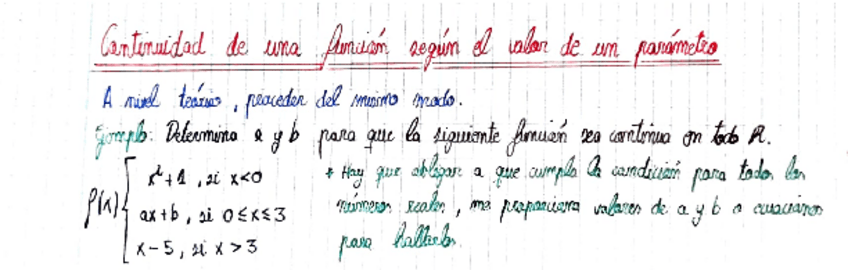 Continuidad de una función según el valor de un parámetro
A nivel teórico, proceder del mismo modo.
Ejemplo: Determina a y b para que la siguiente función sea continua en todo R.
f(x) { x²+1, si x<0
ax+b, si 0≤x≤3
x-5, si x>3
* Hay que obligar a que cumpla la condición para todos los
números reales, me proporciona valores de a y b o ecuaciones
para hallarlos.